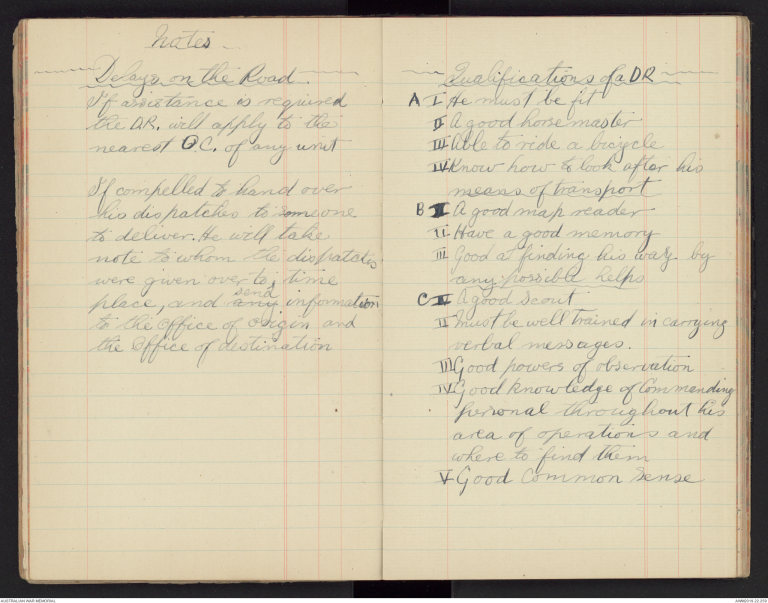 Notes
Delays on the Road
If assistance is required
the D.R. will apply to the
nearest O C. of any unit
If compelled to hand over
his dispatches to someone
to deliver. He will take
note to whom the dispatches
were given over to, time
place, and send any information
to the office of origin and
the Office of destination
Qualifications of a DR
A I He must be fit
II A good horsemaster
III Able to ride a bicycle
IV Know how to look after his
means of transport
B I A good map reader
II Have a good memory
III Good at finding his way by
any possible helps
C I A good scout
II Must be well trained in carrying
verbal messages.
III Good powers of observation
IV Good knowledge of Commanding
personal throughout his
area of operations and
where to find them
V Good Common Sense
AUSTRALIAN WAR MEMORIAL